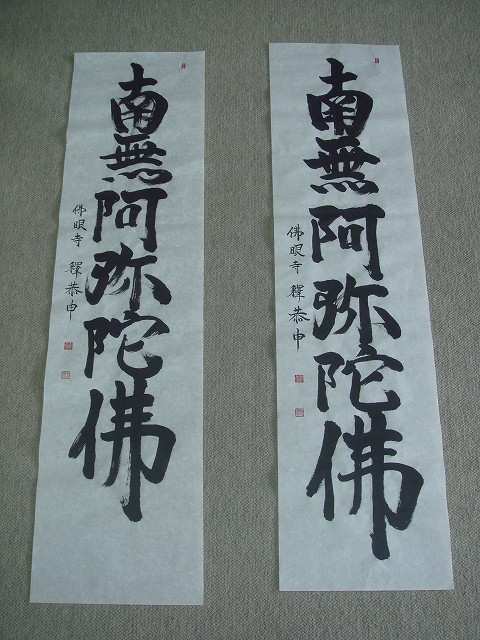 南無阿弥陀佛
佛眼寺 釋恭申
南無阿弥陀佛
佛眼寺 釋恭申